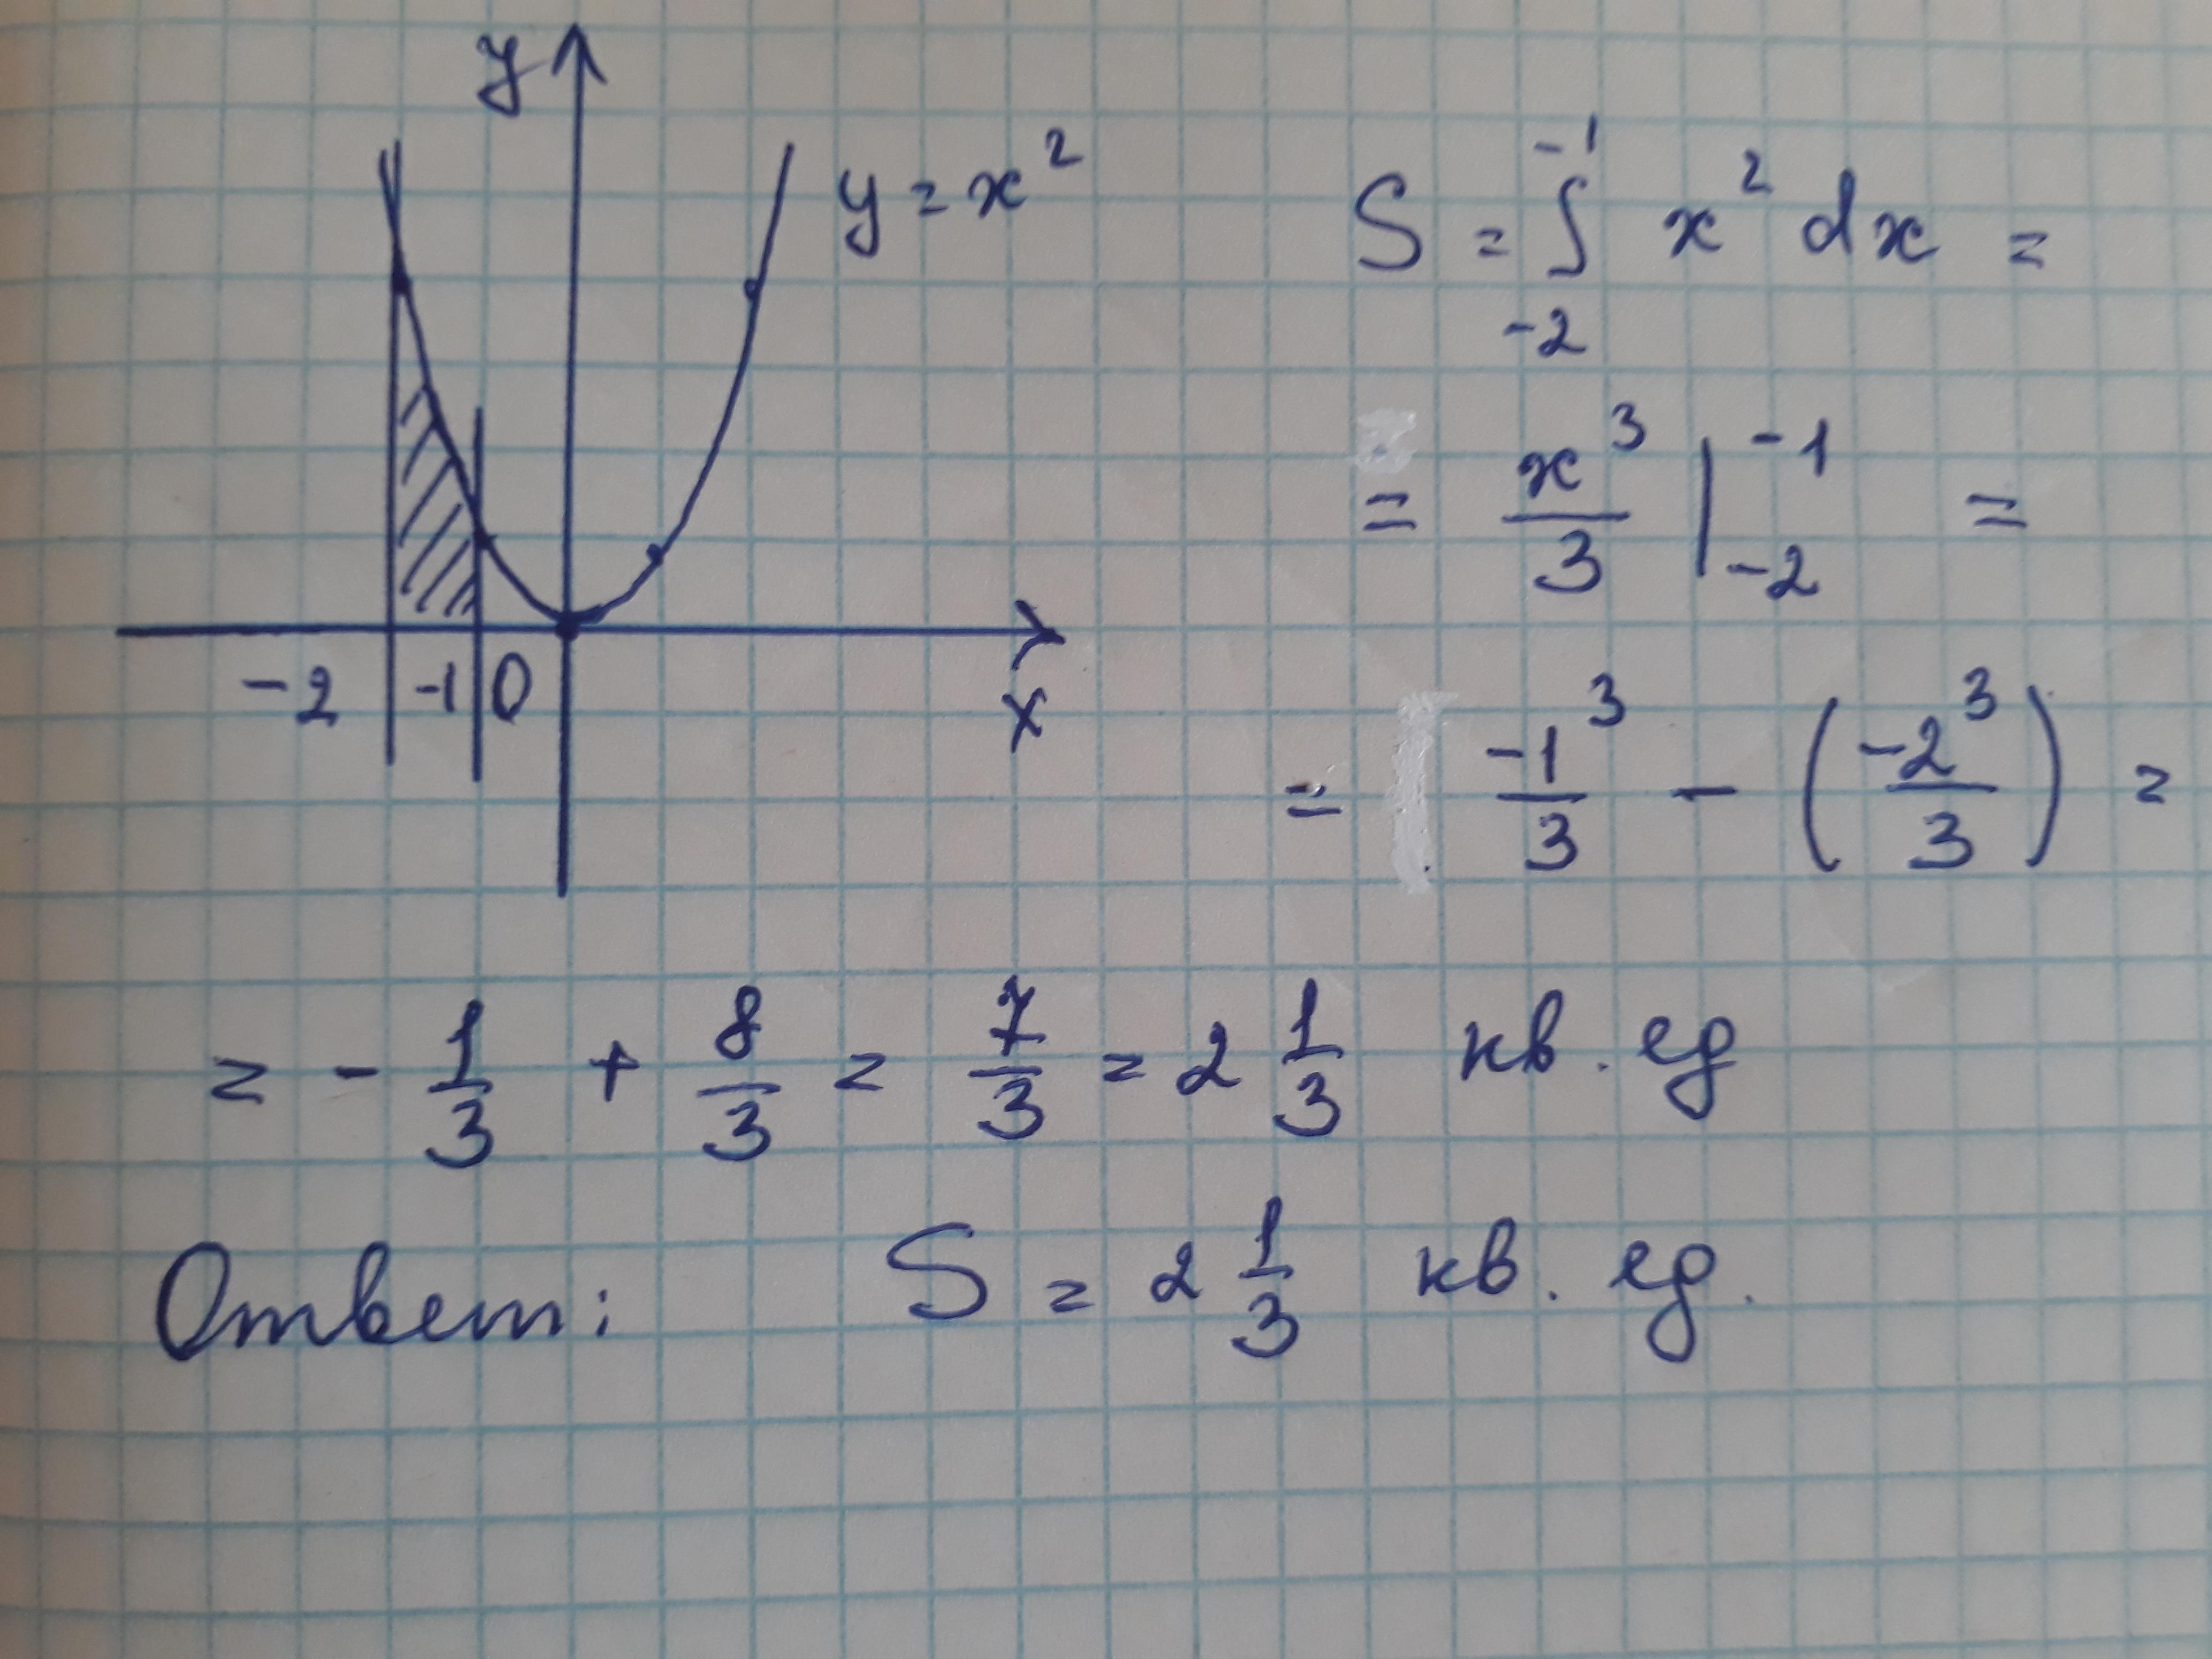 y
y = x²
-2 -1 0
x
S = ∫₋₂⁻¹ x² dx =
= x³/3 |₋₂⁻¹ =
= -1³/3 - (-2³/3) =
= - 1/3 + 8/3 = 7/3 = 2 1/3 кв. ед
Ответ: S = 2 1/3 кв. ед.